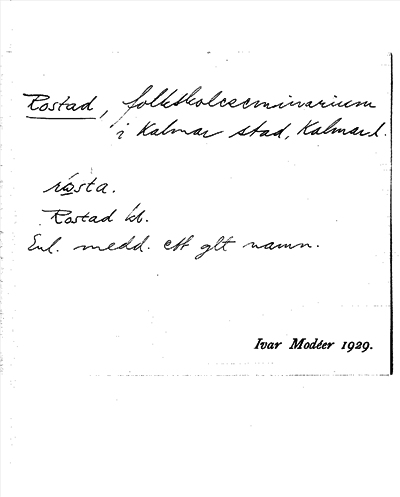 Rostad, folkskoleseminarium
i Kalmar stad, Kalmar l.
rosta.
Rostad kb.
Enl. medd. ett glt namn.
Ivar Modéer 1929.